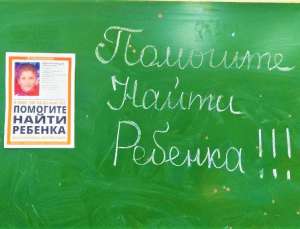 ПОМОГИТЕ
НАЙТИ
РЕБЕНКА
Помогите
Найти
Ребенка!!!